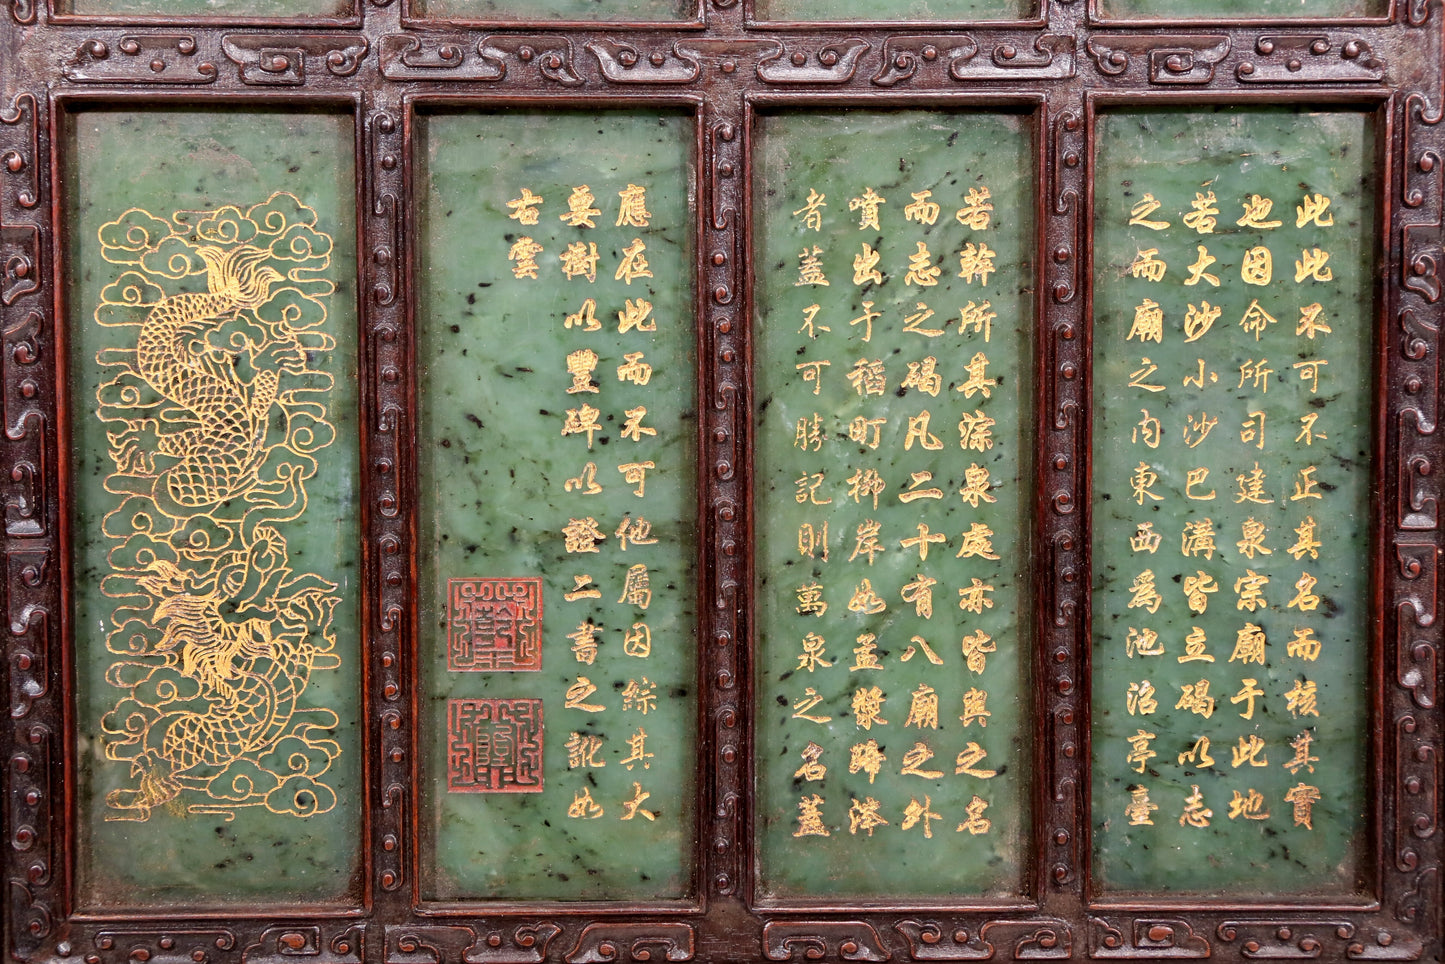 此此不可不正其名而核其實
也因命所司建泉宗廟于此地
若大沙小沙巴溝皆立碣以志
之而廟之内東西為池沼亭臺
若幹所其淙泉處亦皆與之名
而志之碣凡二十有八廟之外
噴出于稻町柳岸如盎漿歸
者蓋不可勝記則萬泉之名蓋
應在此而不可他屬因綜其大
要樹以豐碑以證二書之訛如
右雲